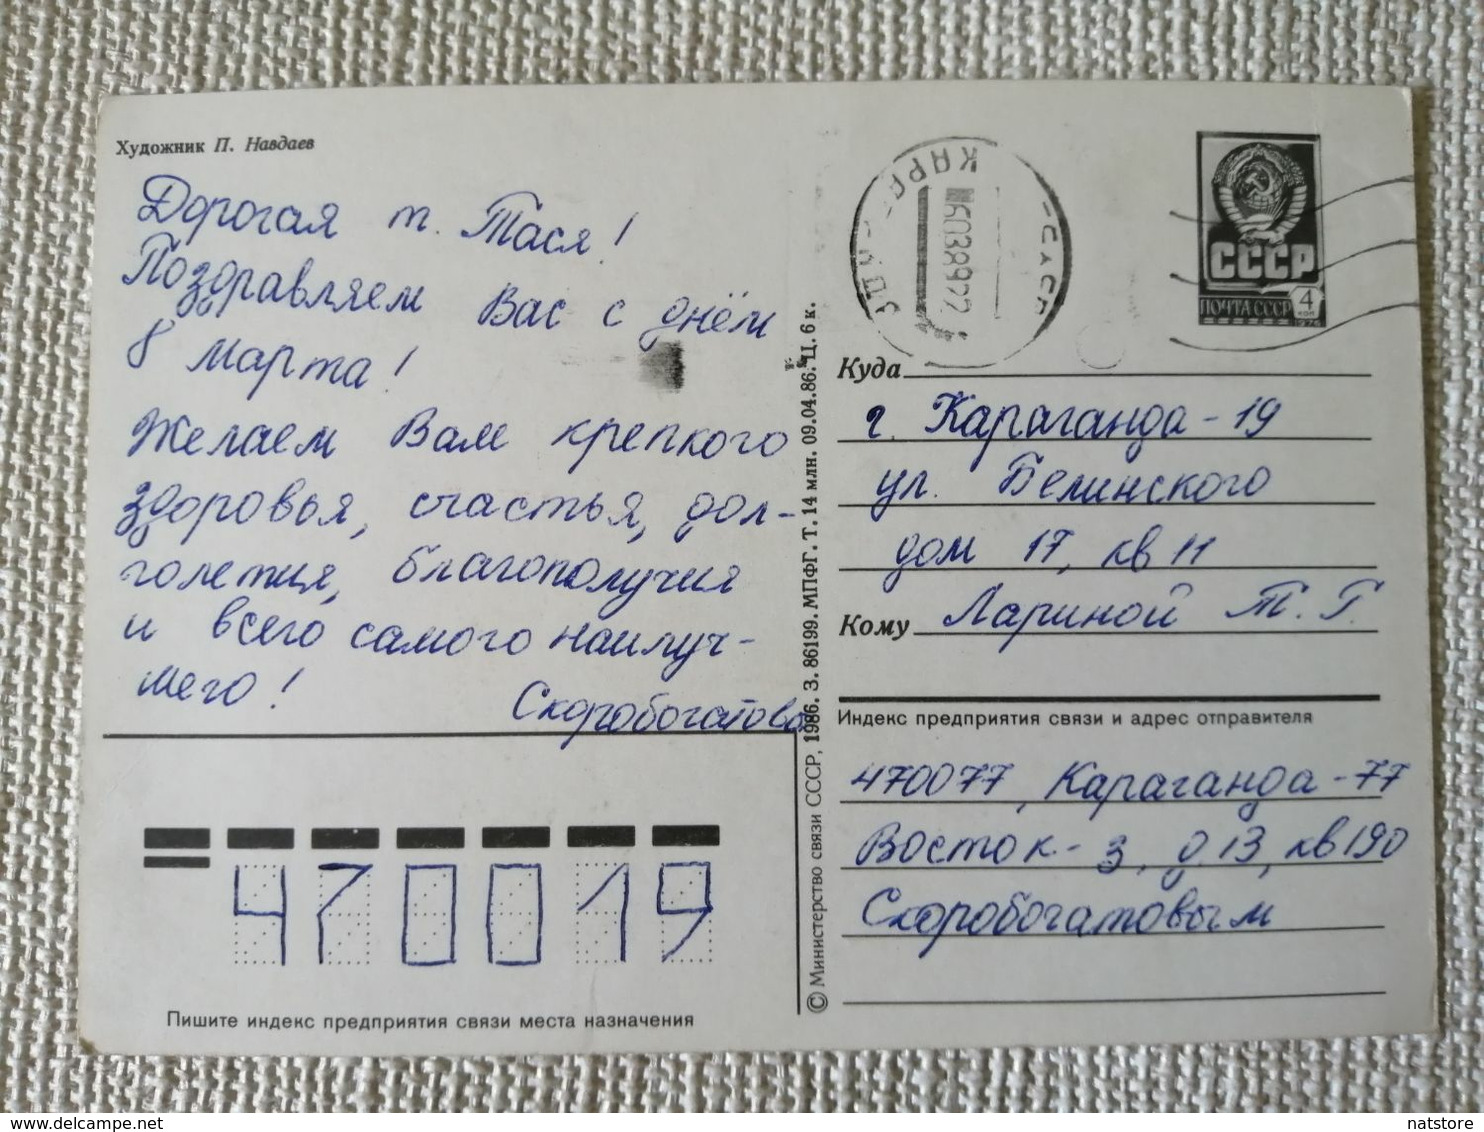 Художник П. Навдаев
Дорогая т. Тася!
Поздравляем Вас с днём
8 Марта!
Желаем Вам крепкого
здоровья, счастья, дол-
голетия, благополучия
и всего самого наилуч-
шего!
Скоробогатова
470019
Пишите индекс предприятия связи места назначения
© Министерство связи СССР, 1986. З. 86199. МПФГ. Т. 14 млн. 09.04.86. Ц. 6 к.
СССР
ПОЧТА СССР 4 коп
1976
Куда
г. Караганда-19
ул. Белинского
дом 17, кв 11
Кому Лариной Т. Г.
Индекс предприятия связи и адрес отправителя
470077, Караганда-77
Восток-3, д 13, кв 190
Скоробогатовым
delcampe.net
natstore